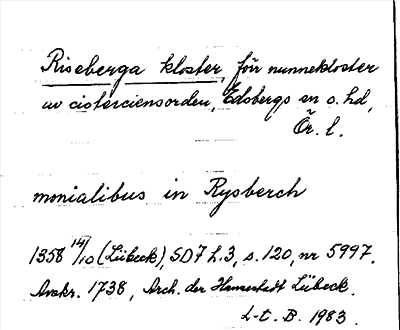 Riseberga kloster, för nunnekloster
av cisterciensorden, Edsbergs sn o. hd,
Ör. l.
monialibus in Rysberch
1358 14/10 (Lübeck), SD 7 h. 3, s. 120, nr 5997.
Avskr. 1738, Arch. der Hansestadt Lübeck.
L-t. B. 1983.